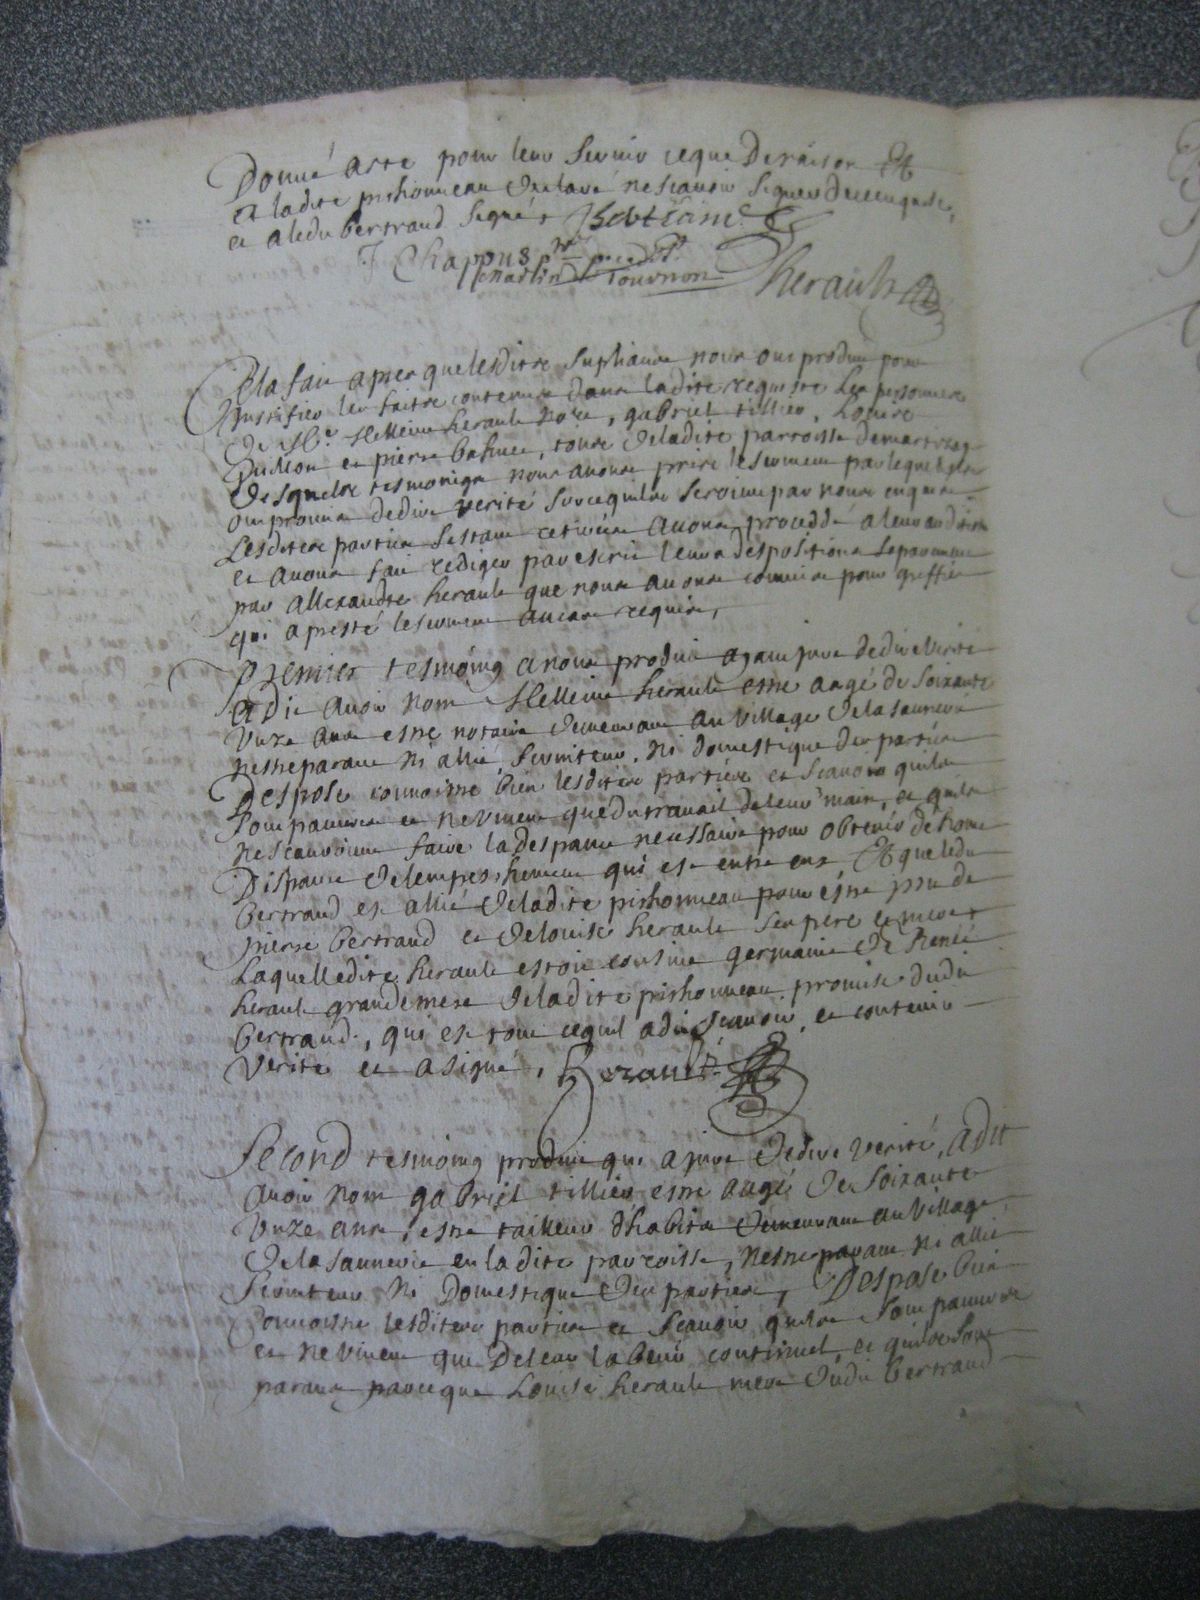 Donné acte pour leur servir ce que de raison Et
et ladite pishonneau declaré ne scavoir signer de ce enquise,
et a ledit bertrand signé,
J Chapons
Martin Tournon herault
Cela fait apres que lesdits supliants nous ont produit pour
Justifier les faits contenus dans ladite requeste les personnes
de Me Helleine herault nore, gabriel tillier, Louis
et pierre , tous de ladite parroisse de
Desquels tesmoings nous avons prins le serment par lequel ils
ont promis de dire verité sur ce quils seroient par nous enquis
Lesdites parties sestant retirées avons procedé a leur audition
et avons fait rediger par escrit leurs despositions separement
par allexandre herault que nous avons commis pour greffier
qui a presté le serment au cas requis,
Premier tesmoing a nous produit ayant juré de dire verité
a dit avoir nom Helleine herault estre aagé de soixante
unze ans estre notaire demeurant au village de la saunerie
nestre parant ni allié, serviteur, ni domestique des parties
Despose connoistre bien lesdites parties et scavoir quils
sont pauvres et ne vivent que du travail de leurs mains, et quils
ne scauroient faire la despance necessaire pour obtenir de Rome
Dispance de lempeschement qui est entre eux Et que ledit
bertrand est allié de ladite pishonneau pour estre issu de
pierre bertrand et de louise herault ses pere et mere
Laquelle dite herault estoit cousine germaine de Renée
herault grande mere de ladite pishonneau promise dudit
bertrand, qui est tout ce quil a dit scavoir, et contenir
verité et a signé, herault
Second tesmoing produit qui a juré de dire verité, a dit
avoir nom gabriel tillier estre aagé de soixante
unze ans, estre tailleur dhabits demeurant au village
de la saunerie en ladite parroisse, nestre parant ni allié
serviteur ni Domestique des parties, Despose bien
connoistre lesdites parties et scavoir quils sont pauvres
et ne vivent que de leur labeur continuel, et quils sont
parans parceque Louise herault mere dudit bertrand